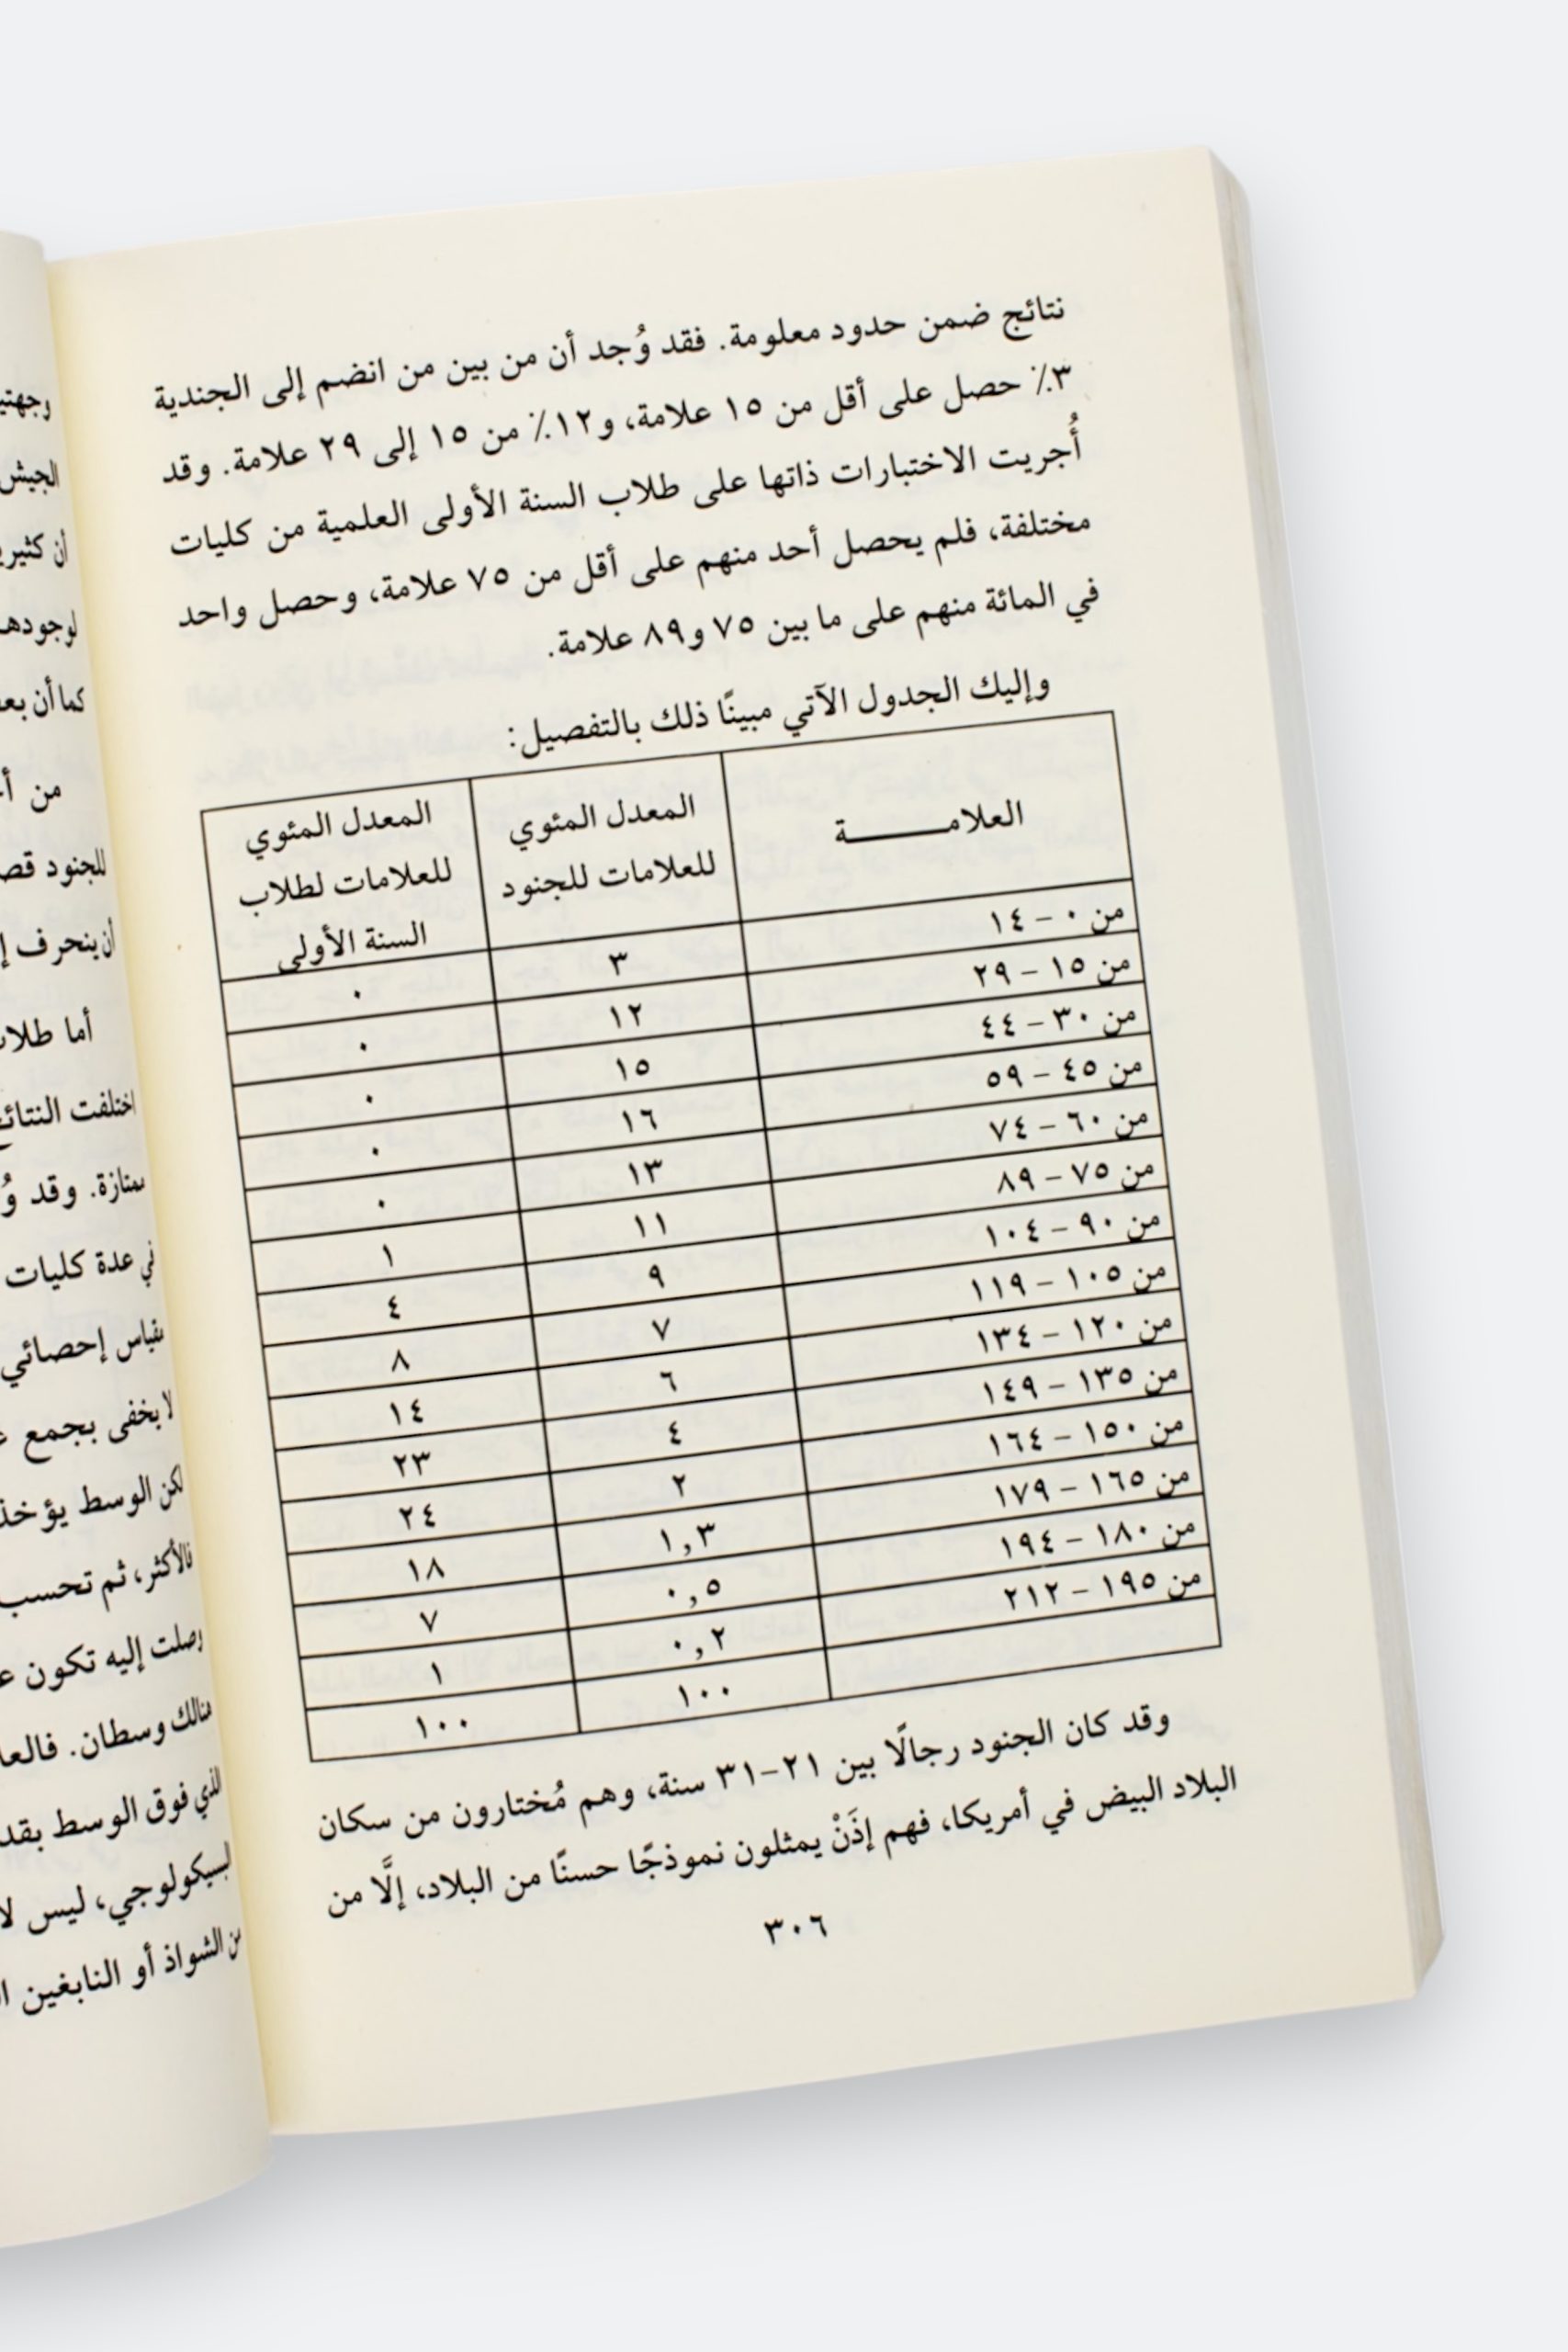 نتائج ضمن حدود معلومة. فقد وُجد أن من بين من انضم إلى الجندية
٣٪ حصل على أقل من ١٥ علامة، و١٢٪ من ١٥ إلى ٢٩ علامة. وقد
أُجريت الاختبارات ذاتها على طلاب السنة الأولى العلمية من كليات
مختلفة، فلم يحصل أحد منهم على أقل من ٧٥ علامة، وحصل واحد
في المائة منهم على ما بين ٧٥ و٨٩ علامة.
وإليك الجدول الآتي مبينًا ذلك بالتفصيل:
العلامـــــــة المعدل المئوي للعلامات للجنود المعدل المئوي للعلامات لطلاب السنة الأولى
من ٠ – ١٤ ٣ ٠
من ١٥ – ٢٩ ١٢ ٠
من ٣٠ – ٤٤ ١٥ ٠
من ٤٥ – ٥٩ ١٦ ٠
من ٦٠ – ٧٤ ١٣ ٠
من ٧٥ – ٨٩ ١١ ١
من ٩٠ – ١٠٤ ٩ ٤
من ١٠٥ – ١١٩ ٧ ٨
من ١٢٠ – ١٣٤ ٦ ١٤
من ١٣٥ – ١٤٩ ٤ ٢٣
من ١٥٠ – ١٦٤ ٢ ٢٤
من ١٦٥ – ١٧٩ ١,٣ ١٨
من ١٨٠ – ١٩٤ ٠,٥ ٧
من ١٩٥ – ٢١٢ ٠,٢ ١
١٠٠ ١٠٠
وقد كان الجنود رجالًا بين ٢١–٣١ سنة، وهم مُختارون من سكان
البلاد البيض في أمريكا، فهم إذَنْ يمثلون نموذجًا حسنًا من البلاد، إلَّا من
٣٠٦
الجيش
أن
كما أن
من
للجنود
أن ينحرف
أما
اختلفت
ممتازة. وقد
في عدة كليات
مقياس إحصائي
لا يخفى بجمع
لكن الوسط يؤخذ
فالأكثر، ثم تحسب
وصلت إليه تكون
هنالك وسطان.
الذي فوق الوسط
ليس
من الشواذ أو النابغين